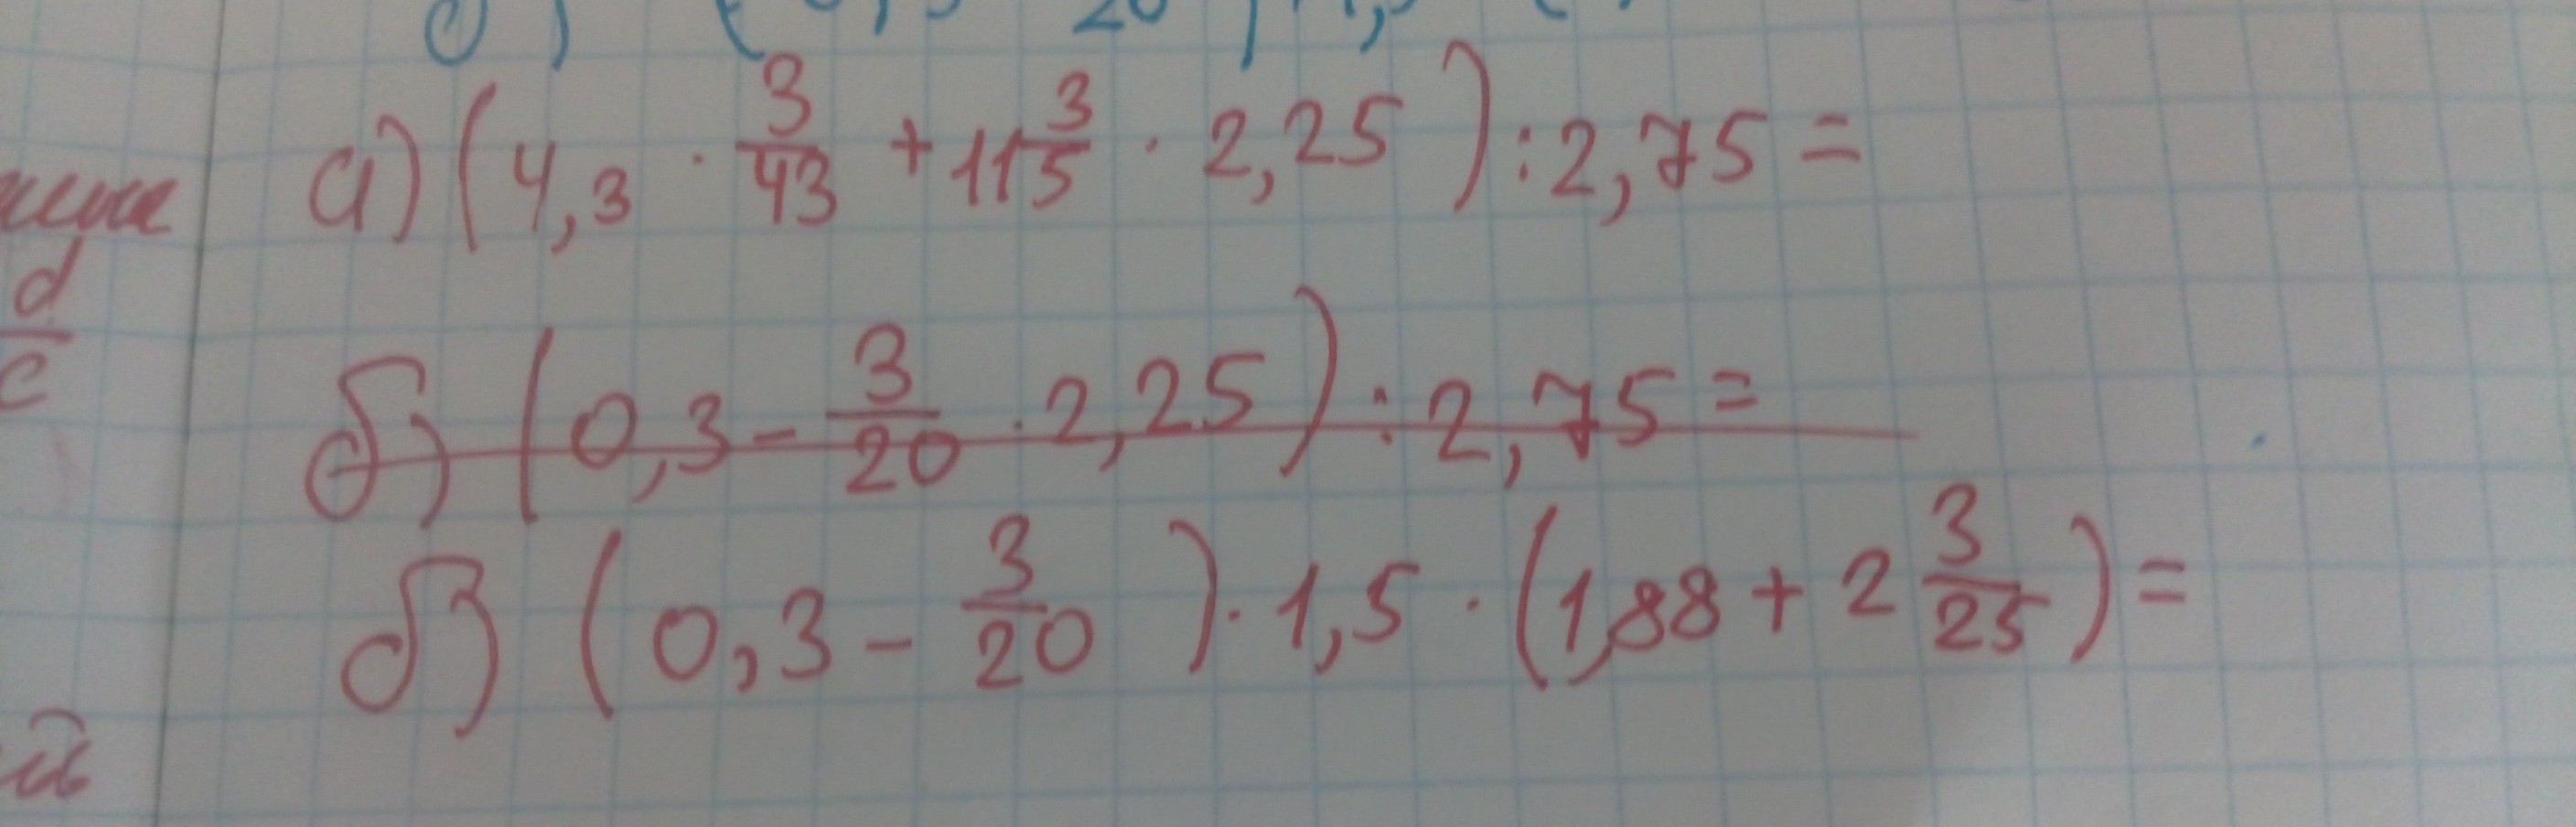 а) (4,3 · 3/43 + 11 3/5 · 2,25) : 2,75 =
б) (0,3 - 3/20 · 2,25) : 2,75 =
б) (0,3 - 3/20) · 1,5 · (1,88 + 2 3/25) =
d/c